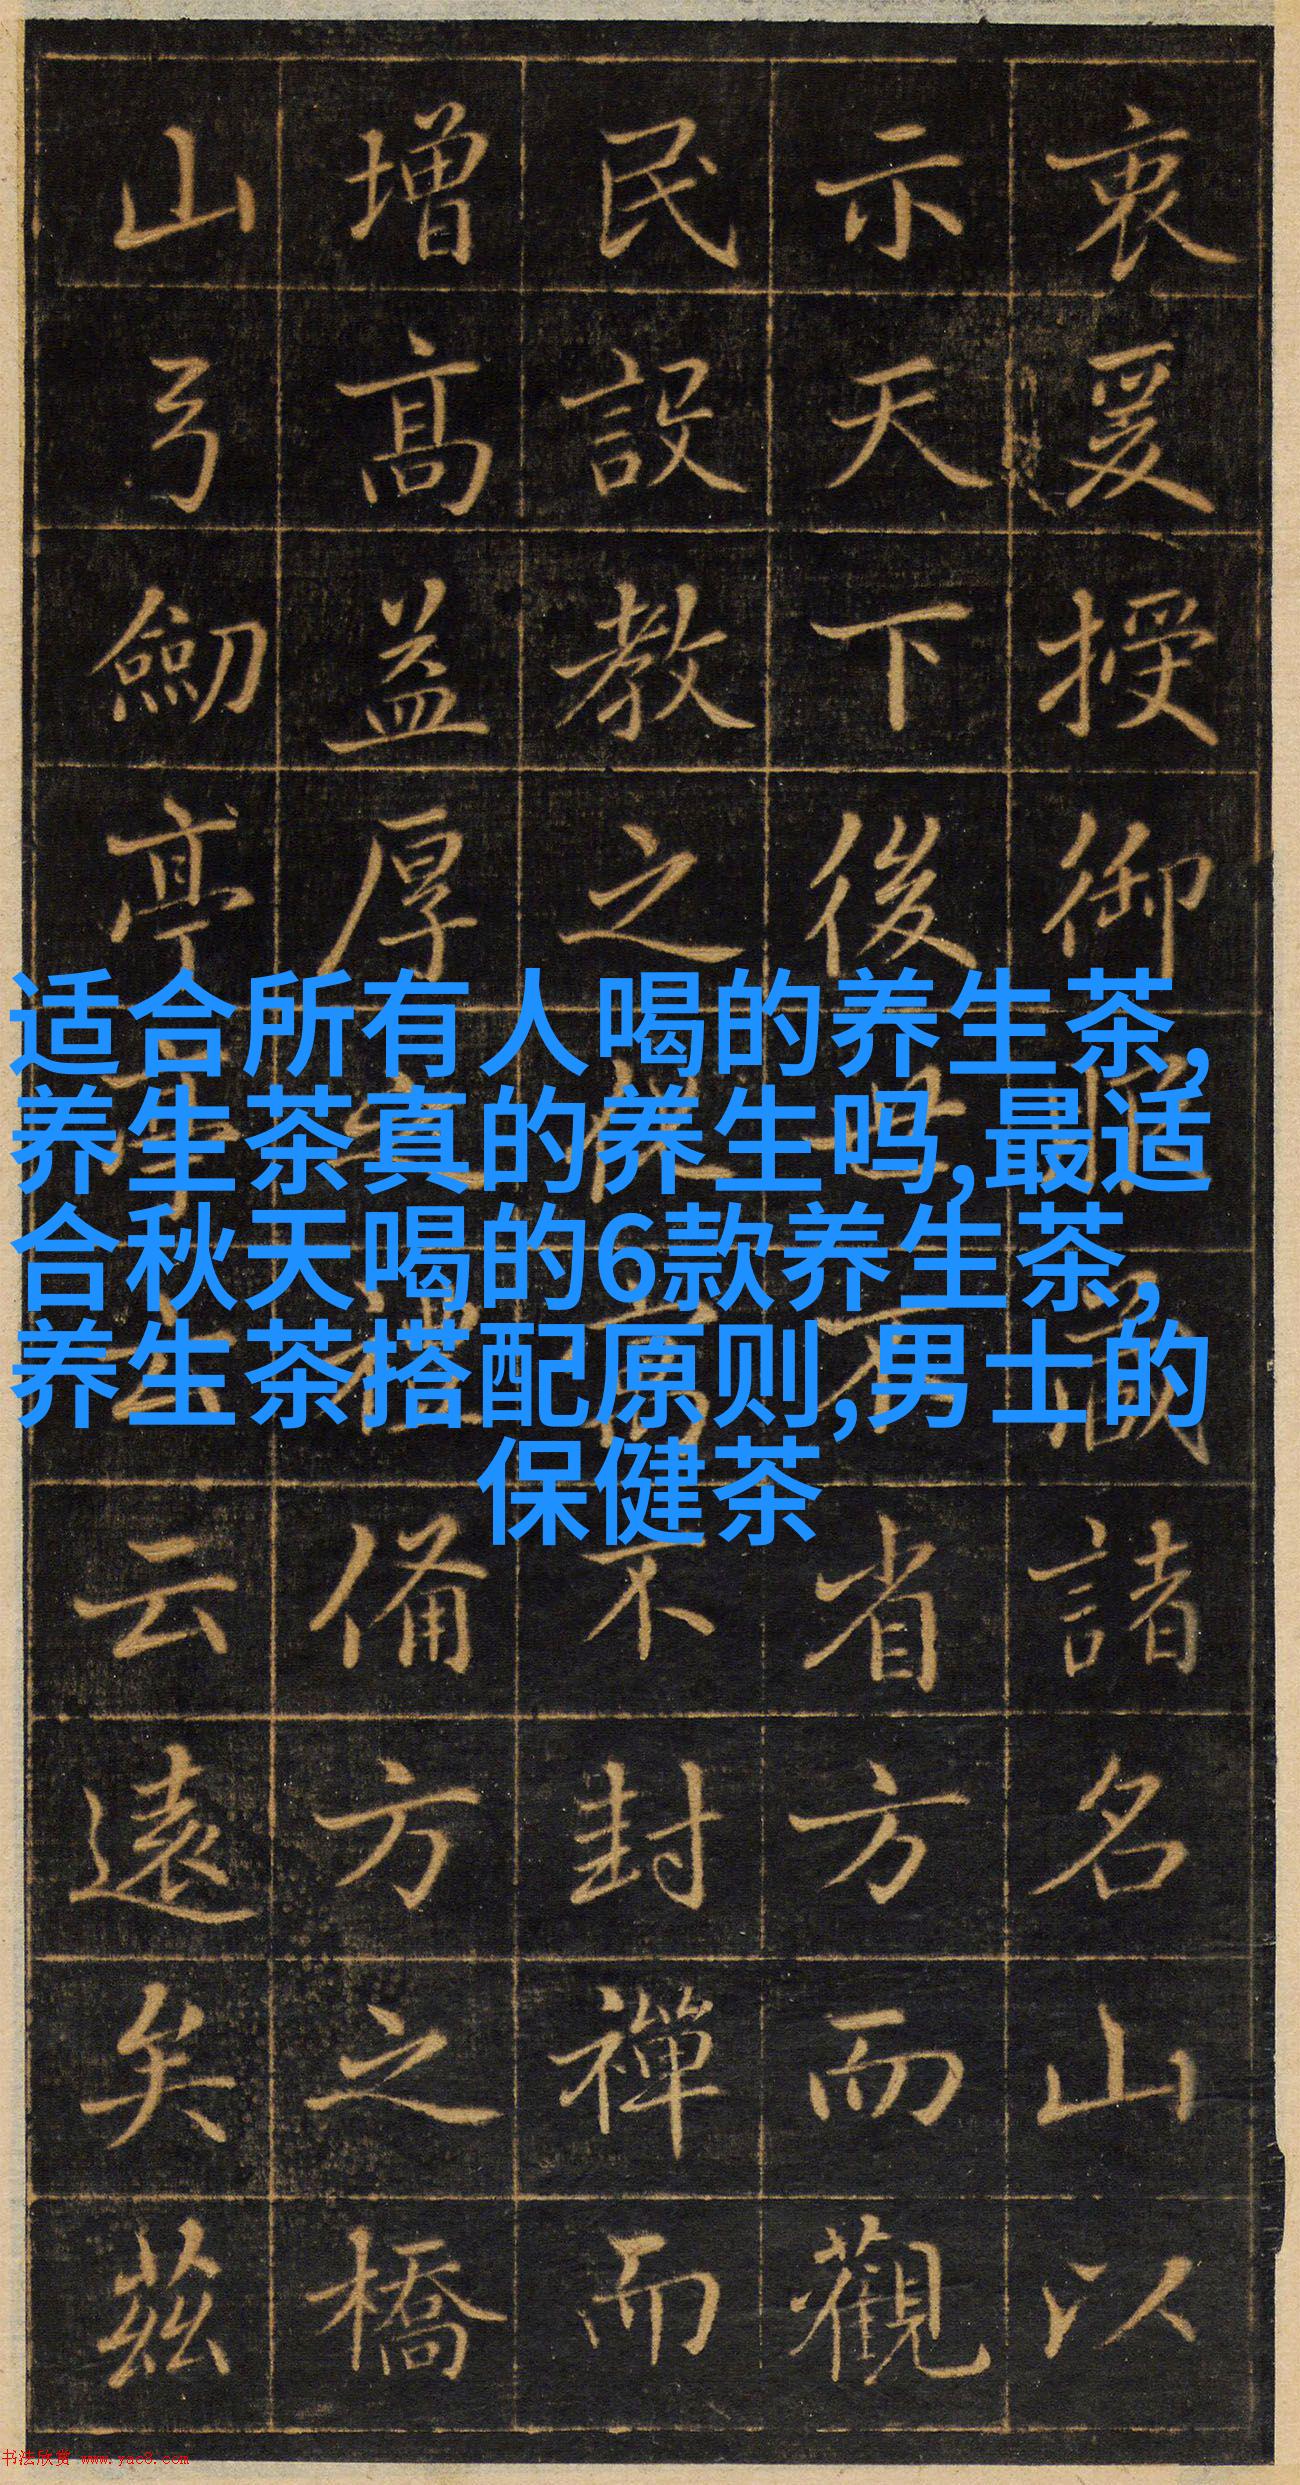 衷爰授御諸名山以
示天下後世省方而觀
民設教之不封禪而
增高益厚備方之橋
山弓劒亭云遠矣茲
适合所有人喝的养生茶,
养生茶真的养生吗,最适
合秋天喝的6款养生茶,
养生茶搭配原则,男士的
保健茶
书法欣赏 www.yac8.com